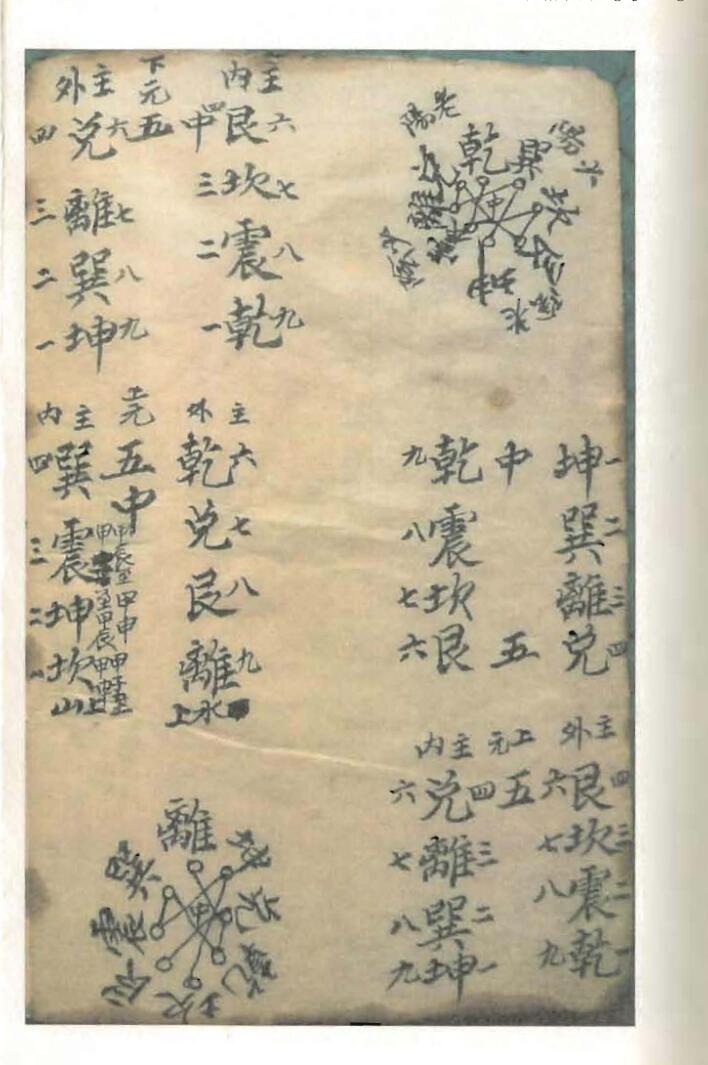 老陽
乾 巽
離 坎
中
艮
坤
坤一
中
乾九
巽二
震八
離三
坎七
兌四
五
艮六
主外
上元
主內
四艮六
五
四兌六
三坎七
三離七
二震八
二巽八
一乾九
一坤九
主內
六艮四
中
七坎三
八震二
九乾一
下元
五
主外
六兌四
七離三
八巽二
九坤一
主外
乾六
兌七
艮八
離九
上水
上元
五
中
甲申
甲辰
主內
四巽
三震
二坤
一坎
山上
離
巽 坤
震 中 兌
艮 乾
坎